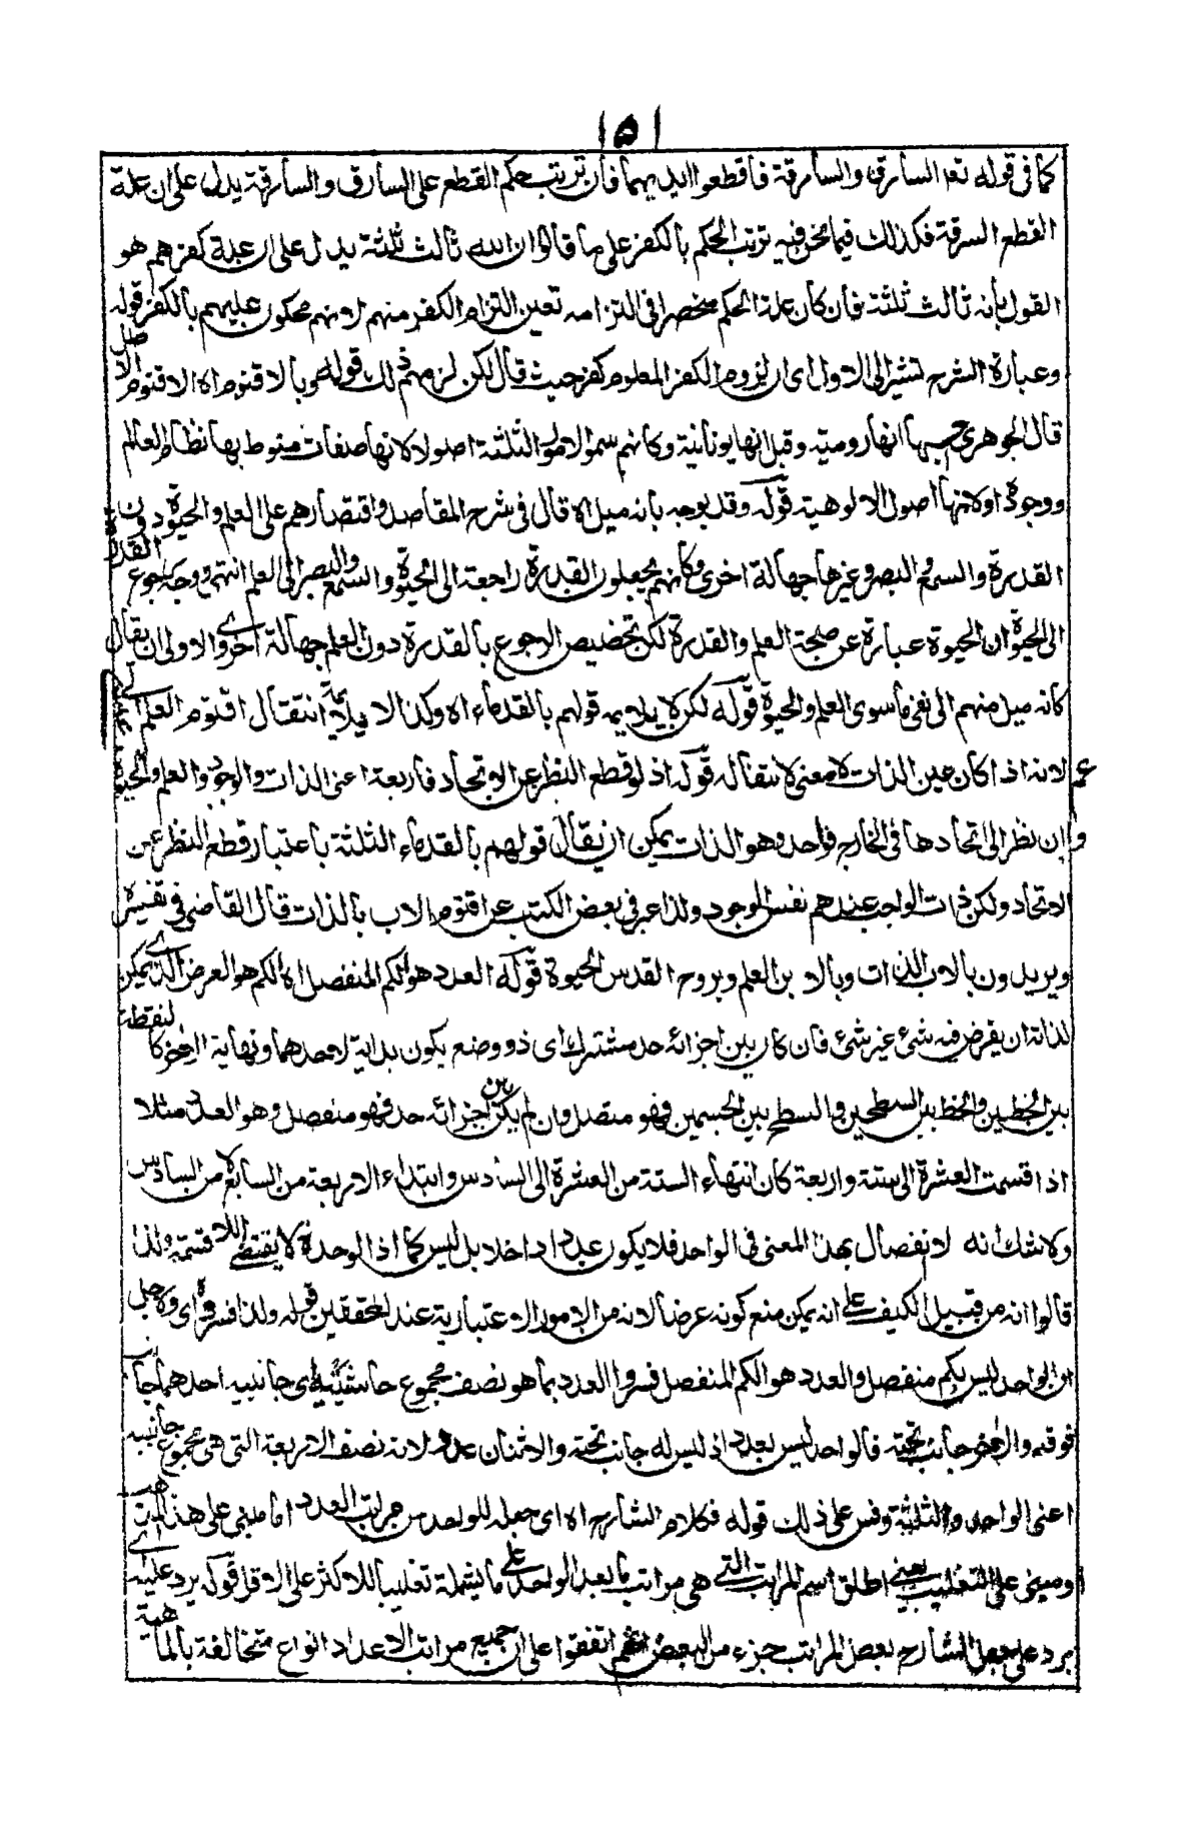 ١٥١
كما في قوله تعا السارق والسارقة فاقطعوا ايديهما فان ترتيب حكم القطع على السارق والسارقة يدل على ان علة
القطع السرقة فكذلك فيما نحن فيه ترتب الحكم بالكفر على ما قالوا ان الله ثالث ثلثة يدل على ان علة كفرهم هو
القول بانه ثالث ثلثة فان كان علة الحكم منحصرا في التزامه تعين التزام الكفر منهم لانهم محكون عليهم بالكفر قوله
وعبارة الشرح تشير الى الاول اى ان لزوم الكفر المعلوم كفر حيث قال لكن لزمهم ذلك قوله وبالاقنوم اه الاقنوم الاصل
قال الجوهرى احسبها انها رومية وقيل انها يونانية وكانهم سموا الامور الثلثة اصولا لانها صفات منوط بها نظام العالم
ووجوده اولانها اصول الالوهية قوله وقد يوجه بانه ميل اه قال في شرح المقاصد واقتصارهم على العلم والحيوة دون القدرة
القدرة والسمع والبصر وغيرها جهالة اخرى وكانهم يجعلون القدرة راجعة الى الحيوة والسمع والبصر الى العلم انتهى ووجه رجوع
الى الحيوة ان الحيوة عبارة عن صحة العلم والقدرة لكن تخصيص الرجوع بالقدرة دون العلم جهالة اخرى والاولى ان يقال
كانه ميل منهم الى نفى ماسوى العلم والحيوة قوله لكن لا يلايمه قولهم بالقدماء اه وكذا لا يلايمه انتقال اقنوم العلم
لانه اذا كان عين الذات لا معنى لانتقاله قوله اذ لو قطع النظر عن الاتحاد فاربعة اعنى الذات والوجود والعلم والحيوة
وان نظر الى اتحادها في الخارج فواحد وهو الذات يمكن ان يقال قولهم بالقدماء الثلثة باعتبار قطع النظر عن
الاتحاد ولكن ذات الواجب عندهم نفس الوجود ولذا عبر في بعض الكتب عن اقنوم الاب بالذات قال القاضى في تفسيره
ويريدون بالاب الذات وبالابن العلم وبروح القدس الحيوة قوله العدد هو الكم المنفصل اه الكم هو العرض الذى يمكن
لذاته ان يفرض فيه شئ غير شئ فان كان بين اجزائه حد مشترك اى ذو وضع يكون بداية لاحدهما ونهاية الاخر كالنقطة
بين الخطين والخط بين السطحين والسطح بين الجسمين فهو متصل وان لم يكن بين اجزائه حد فهو منفصل وهو العدد مثلا
اذا قسمت العشرة الى ستة واربعة كان انتهاء الستة من العشرة الى السادس وابتداء الاربعة من السابع لا من السادس
ولا شك انه لا انفصال بهذا المعنى في الواحد فلا يكون عددا داخلا بل ليس كما اذ الوحدة لا يقتضى اللاقسمة ولذا
قالوا انه من قبيل الكيف على انه يمكن منع كونه عرضا لانه من الامور الاعتبارية عند المحققين قوله ولذا فسروه اى ولاجل
ان الواحد ليس بكم منفصل والعدد هو الكم المنفصل فسروا العدد بما هو نصف مجموع حاشيتيه اى جانبيه احدهما جانب
فوقه والاخر جانب تحته فالواحد ليس بعدد اذ ليس له جانب تحته والاثنان عدد لانه نصف الاربعة التى هى مجموع جانبيه
اعنى الواحد والثلثة وقس على ذلك قوله فكلام الشارح اه اى جعله للواحد من مراتب العدد اما مبنى على هذا المذهب
او مبنى على التغليب يعنى اطلق اسم المراتب التى هى مراتب ما بعد الواحد على ما يشمله تغليبا للاكثر على الاقل قوله يرد عليه اى
يرد على جعل الشارح بعض المراتب جزء من البعض انهم اتفقوا على ان جميع مراتب الاعداد انواع متخالفة بالماهية